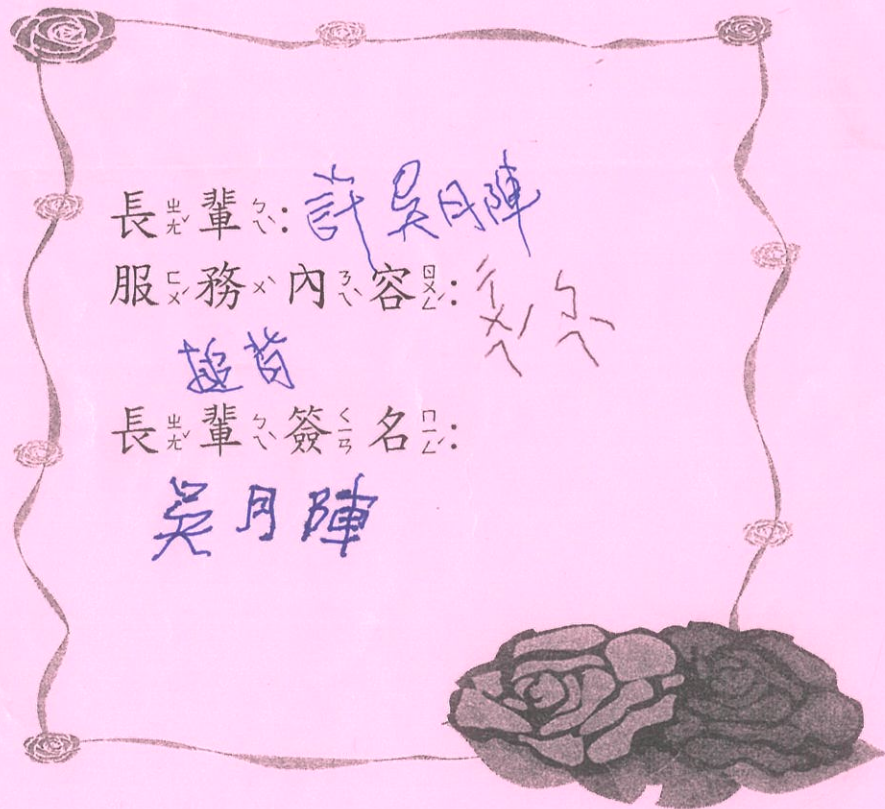 長ㄓㄤˇ輩ㄅㄟˋ:許吳月陣
服ㄈㄨˊ務ㄨˋ內ㄋㄟˋ容ㄖㄨㄥˊ:ㄔㄨㄟˊ ㄅㄟˋ
搥背
長ㄓㄤˇ輩ㄅㄟˋ簽ㄑㄧㄢ名ㄇㄧㄥˊ:
吳月陣